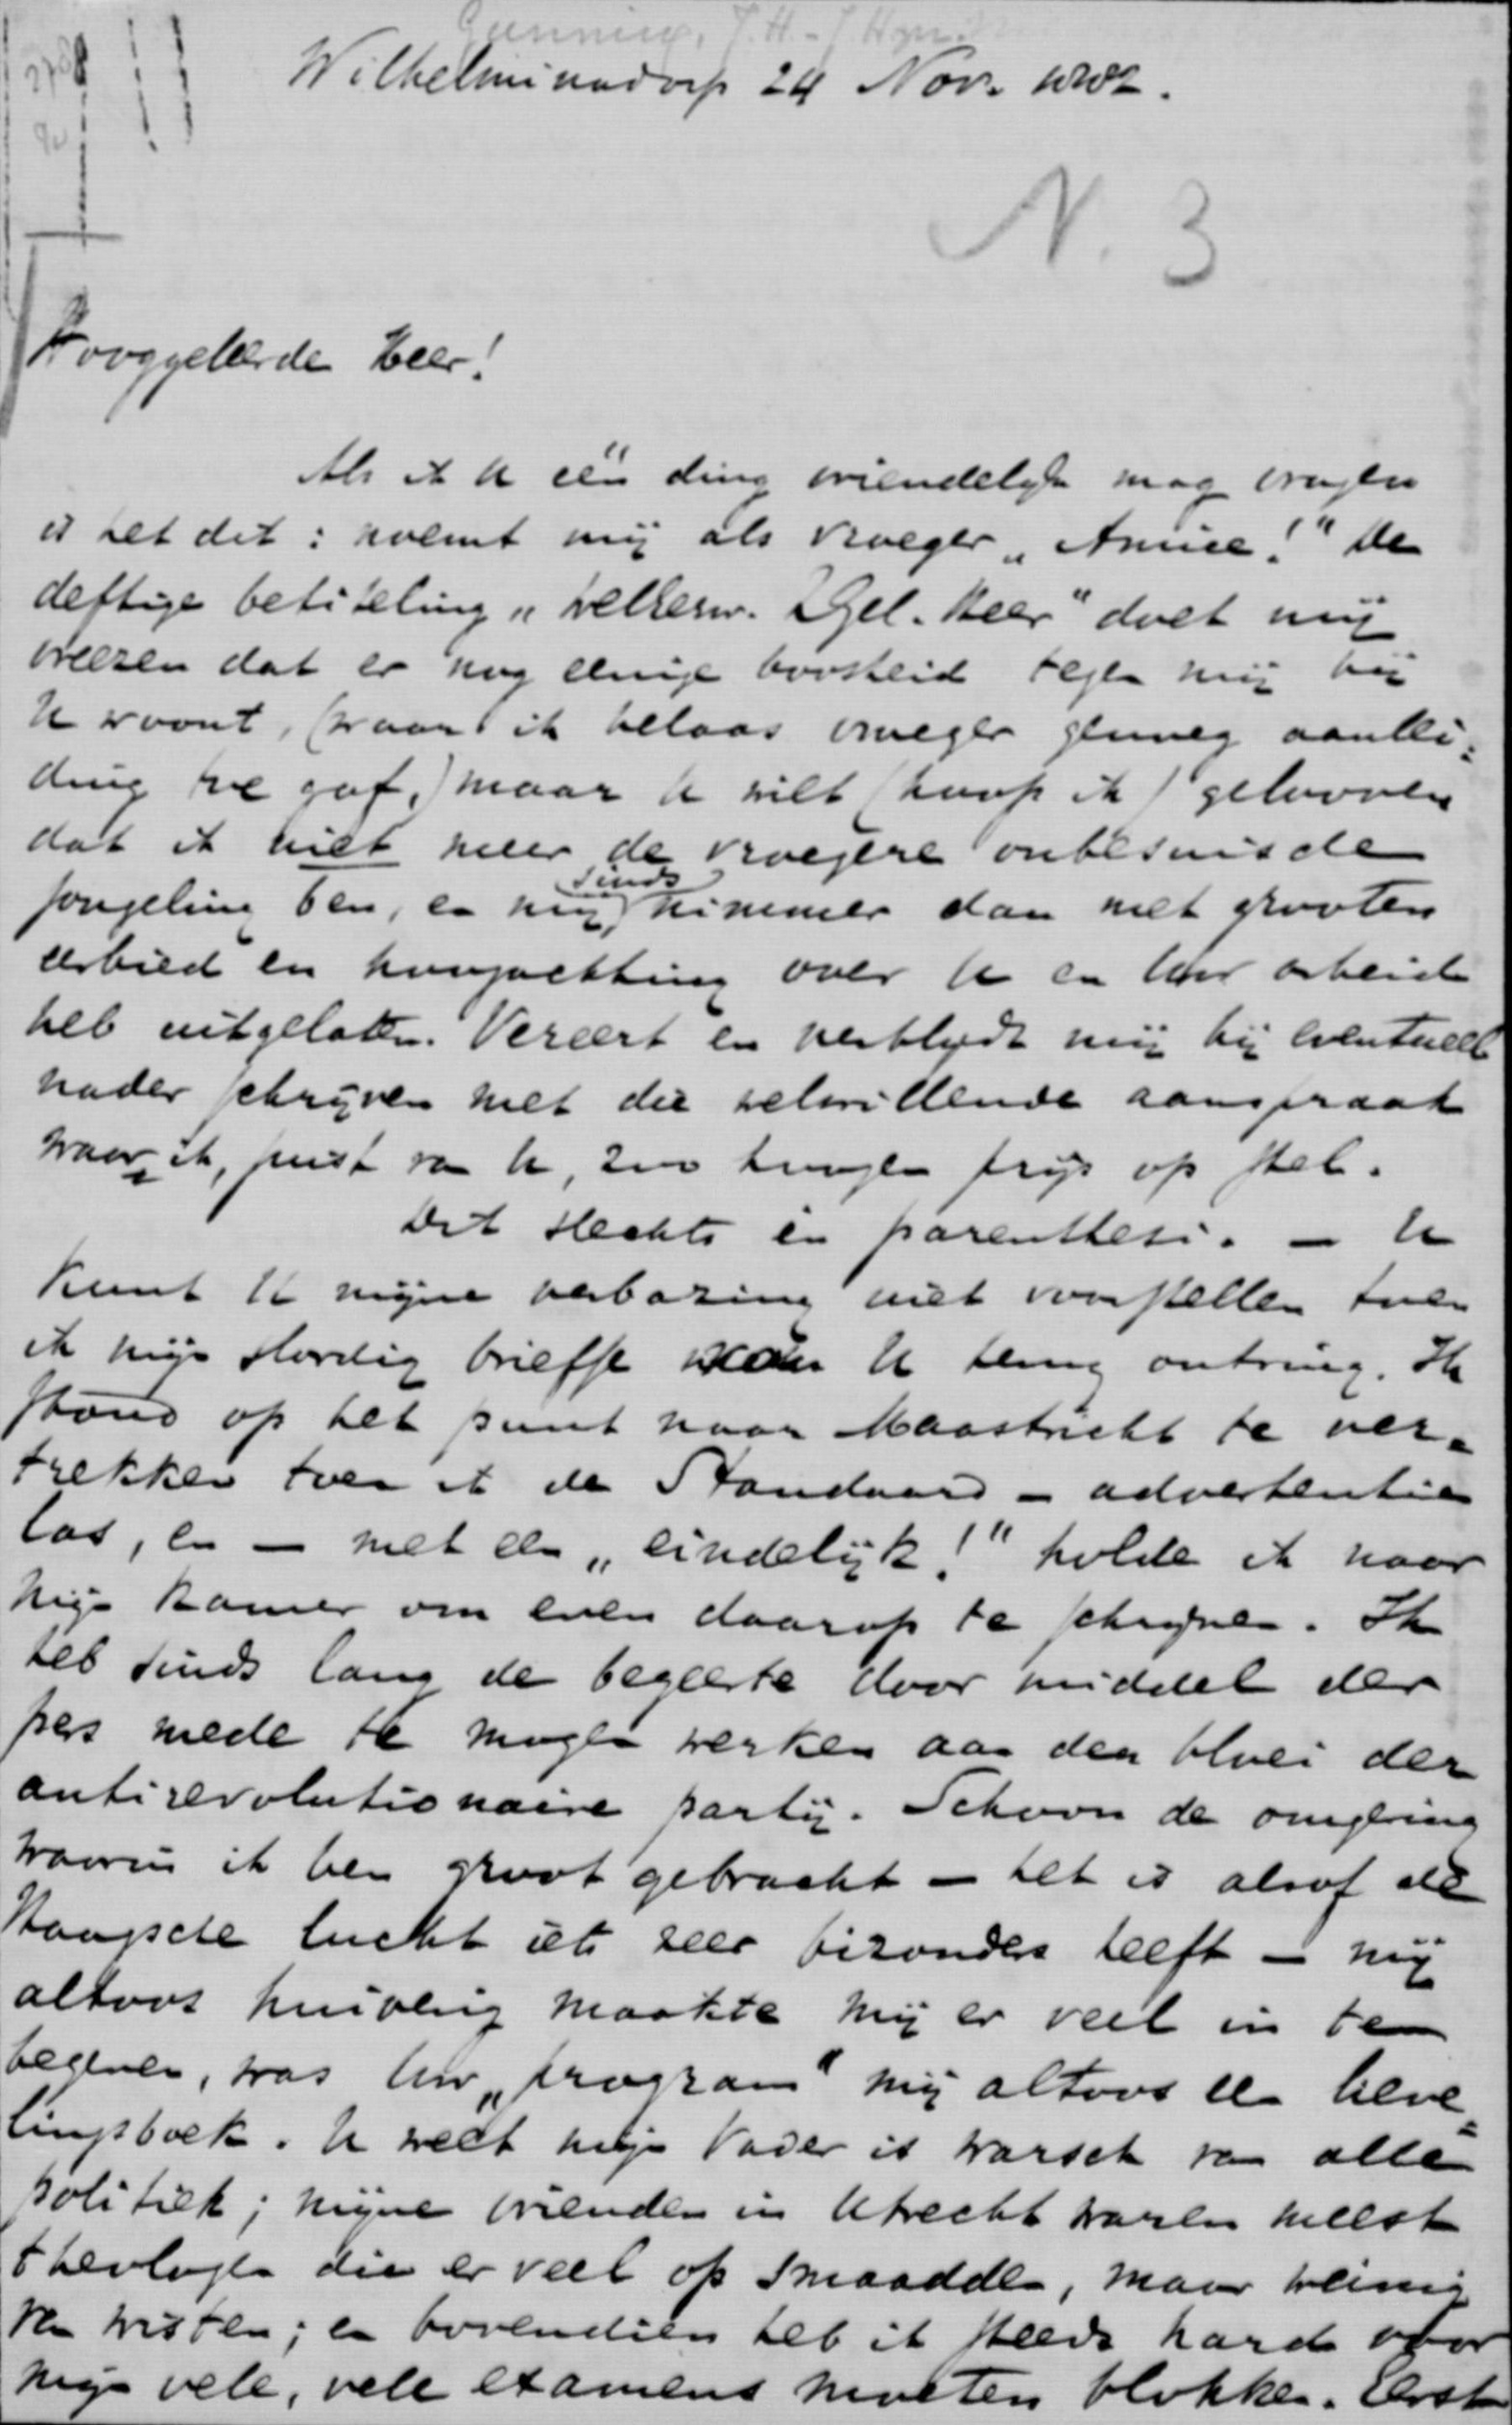 Gunning, J. H. - J. Hzn.
Wilhelminadorp 24 Nov. 1882.
N. 3
Hooggeleerde Heer!
Als ik U één ding vriendelijk mag vragen
is het dit: noemt mij als vroeger „Amice!" De
deftige betiteling „WelEerw. ZGel. Heer" doet mij
vreezen dat er nog eenige boosheid tegen mij bij
U woont, (waar ik helaas vroeger genoeg aanlei-
ding toe gaf,) maar U wilt (hoop ik) gelooven
dat ik niet meer de vroegere onbesuisde
jongeling ben, en mij sinds nimmer dan met grooten
eerbied en hoogachting over U en Uw arbeid
heb uitgelaten. Vereert en verblijdt mij bij eventueel
nader schrijven met die welwillende aanspraak
waar ik, juist van U, zoo hoogen prijs op stel.
Dit slechts in parenthesi. — U
kunt U mijne verbazing niet voorstellen toen
ik mijn slordig briefje van U terug ontving. Ik
stond op het punt naar Maastricht te ver-
trekken toen ik de Standaard - advertentie
las, en — met een „eindelijk!" holde ik naar
mijn kamer om even daarop te schrijven. Ik
heb sinds lang de begeerte door middel der
pers mede te mogen werken aan den bloei der
antirevolutionaire partij. Schoon de omgeving
waarin ik ben groot gebracht — het is alsof de
Haagsche lucht iets zeer bizonders heeft — mij
altoos huiverig maakte mij er veel in te
begeven, was Uw „program" mij altoos een lieve-
lingsboek. U weet mijn Vader is warsch van alle
politiek; mijne vrienden in Utrecht waren meest
theologen die er veel op smaadden, maar weinig
van wisten; en bovendien heb ik steeds hard voor
mijn vele, vele examens moeten blokken. Eerst